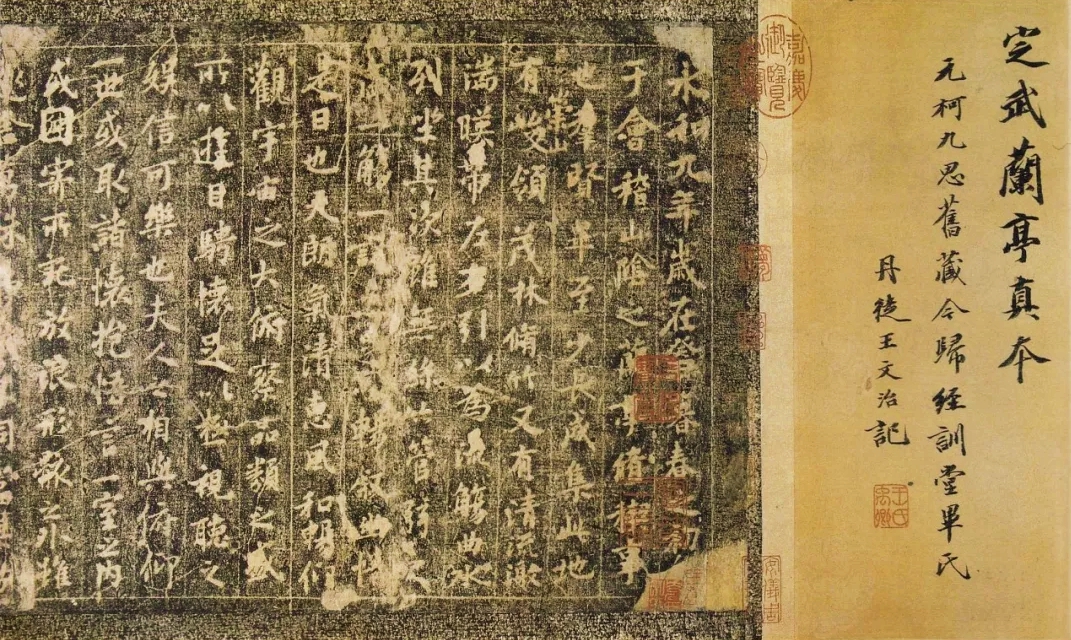 定武蘭亭真本
元柯九思舊藏今歸經訓堂畢氏
丹徒王文治記
王氏禹卿
嘉慶御覽
永和九年歲在癸暮春之初
于會稽山陰之蘭亭脩稧事
也羣賢畢至少長咸集此地
有崇山峻領茂林脩竹又有清流激
湍暎帶左右引以為流觴曲水
列坐其次雖無絲竹管弦之
盛一觴一詠亦足以暢敘幽情
是日也天朗氣清惠風和暢仰
觀宇宙之大俯察品類之盛
所以遊目騁懷足以極視聽之
娛信可樂也夫人之相與俯仰
一世或取諸懷抱悟言一室之內
或因寄所託放浪形骸之外雖